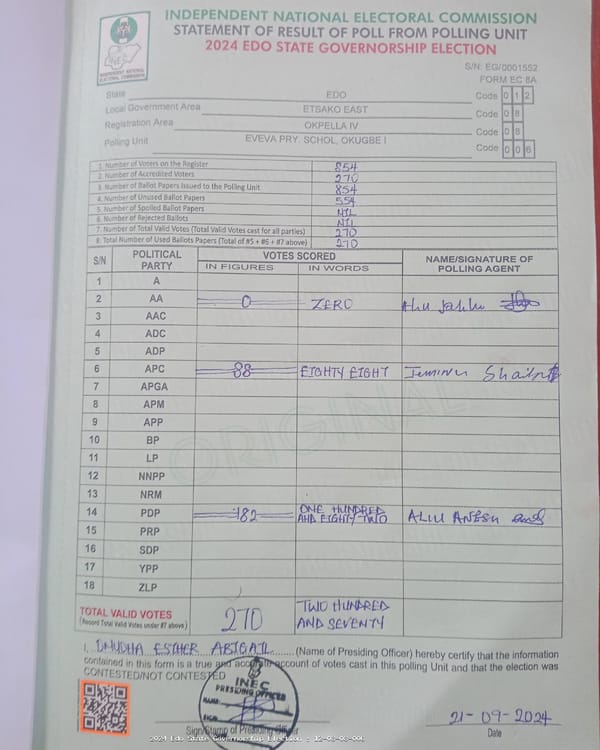 INDEPENDENT NATIONAL ELECTORAL COMMISSION
STATEMENT OF RESULT OF POLL FROM POLLING UNIT
2024 EDO STATE GOVERNORSHIP ELECTION
INEC
INDEPENDENT NATIONAL
ELECTORAL COMMISSION
S/N: EG/0001552
FORM EC 8A
State EDO Code 0 1 2
Local Government Area ETSAKO EAST Code 0 8
Registration Area OKPELLA IV Code 0 8
Polling Unit EVEVA PRY. SCHOL, OKUGBE I Code 0 0 6
1. Number of Voters on the Register 854
2. Number of Accredited Voters 270
3. Number of Ballot Papers Issued to the Polling Unit 854
4. Number of Unused Ballot Papers 554
5. Number of Spoiled Ballot Papers NIL
6. Number of Rejected Ballots NIL
7. Number of Total Valid Votes (Total Valid Votes cast for all parties) 270
8. Total Number of Used Ballots Papers (Total of #5 + #6 + #7 above) 270
S/N POLITICAL PARTY VOTES SCORED NAME/SIGNATURE OF POLLING AGENT
IN FIGURES IN WORDS
1 A
2 AA 0 ZERO
3 AAC
4 ADC
5 ADP
6 APC 88 EIGHTY EIGHT
7 APGA
8 APM
9 APP
10 BP
11 LP
12 NNPP
13 NRM
14 PDP 182 ONE HUNDRED AND EIGHTY TWO ALIU
15 PRP
16 SDP
17 YPP
18 ZLP
ORIGINAL
TOTAL VALID VOTES 270 TWO HUNDRED AND SEVENTY
(Record Total Valid Votes under #7 above)
I, ESTHER ABIGAIL (Name of Presiding Officer) hereby certify that the information
contained in this form is a true and accurate account of votes cast in this polling Unit and that the election was
CONTESTED/NOT CONTESTED
INEC
PRESIDING OFFICER
NAME:
SIGN:
Sign/Stamp of Presiding Officer
21-09-2024
Date
2024 Edo State Governorship Election : 12-08-08-006